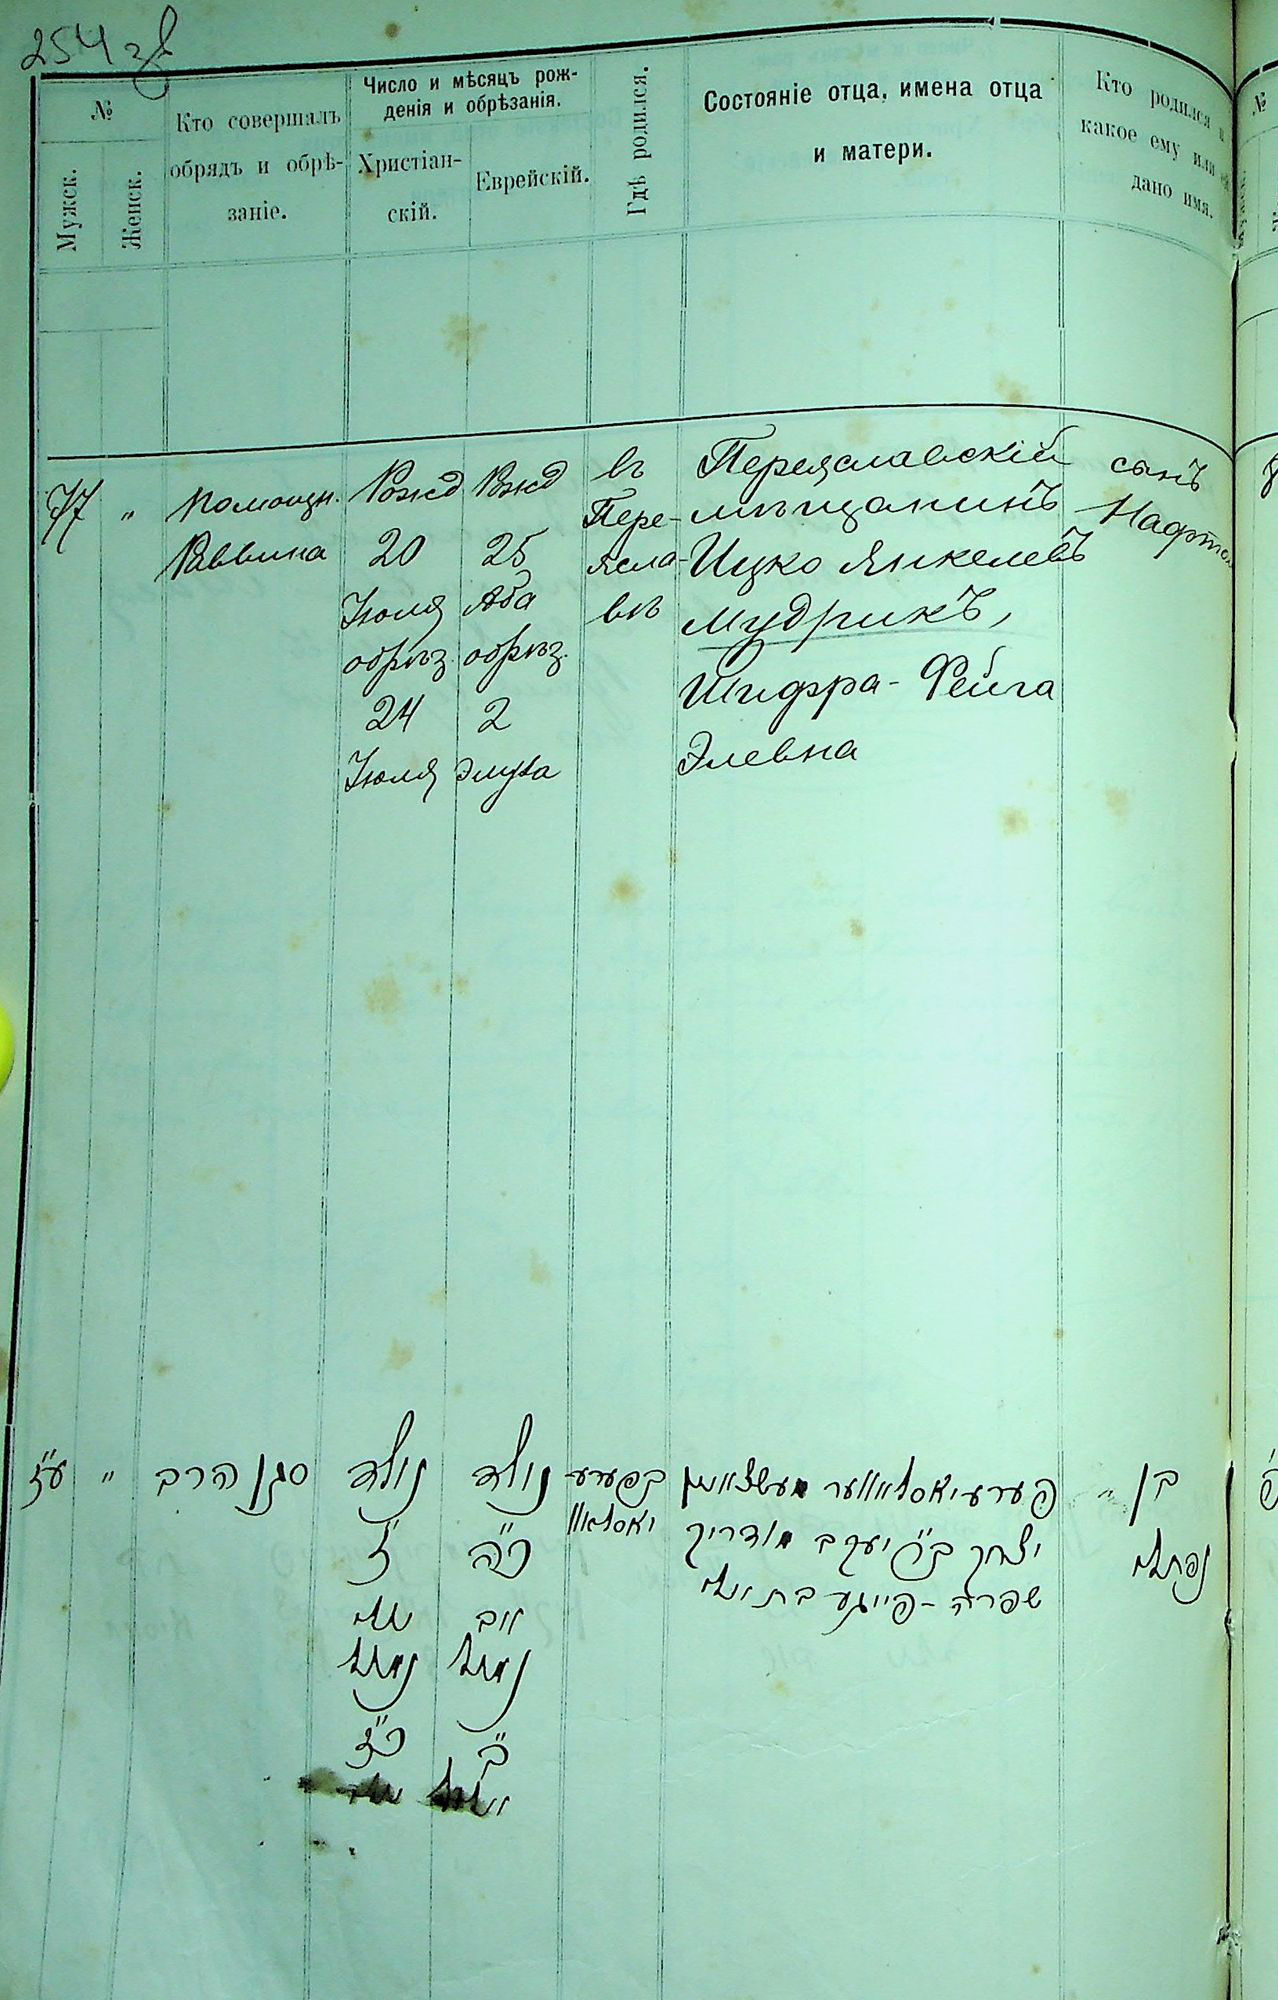 254 зв
№
Мужск.
Женск.
Кто совершалъ
обрядъ и обрѣ-
заніе.
Число и мѣсяцъ рож-
денія и обрѣзанія.
Христіан-
скій.
Еврейскій.
Гдѣ родился.
Состояніе отца, имена отца
и матери.
Кто родился и
какое ему или ей
дано имя.
№
77 "
помощн.
Раввина
Рожд
20
Іюля
обрѣз.
24
Іюля
Ржд
25
Аба
обрѣз.
2
Элула
въ
Пере-
ясла-
вѣ
Переяславскій
мѣщанинъ
Ицко Янкелевъ
Мудрикъ,
Шифра-Фейга
Элевна
сынъ
Нафтол
ע"ז "
סגן הרב
נולד
נולד
כ"ה
נימול
נימול
ב"
בפערע
יאסלאוו
פערעיאסלאווער מעשצאנין
יצחק ב"ר יעקב מודריק
שפרה-פייגע בת
בן "
נפתלי